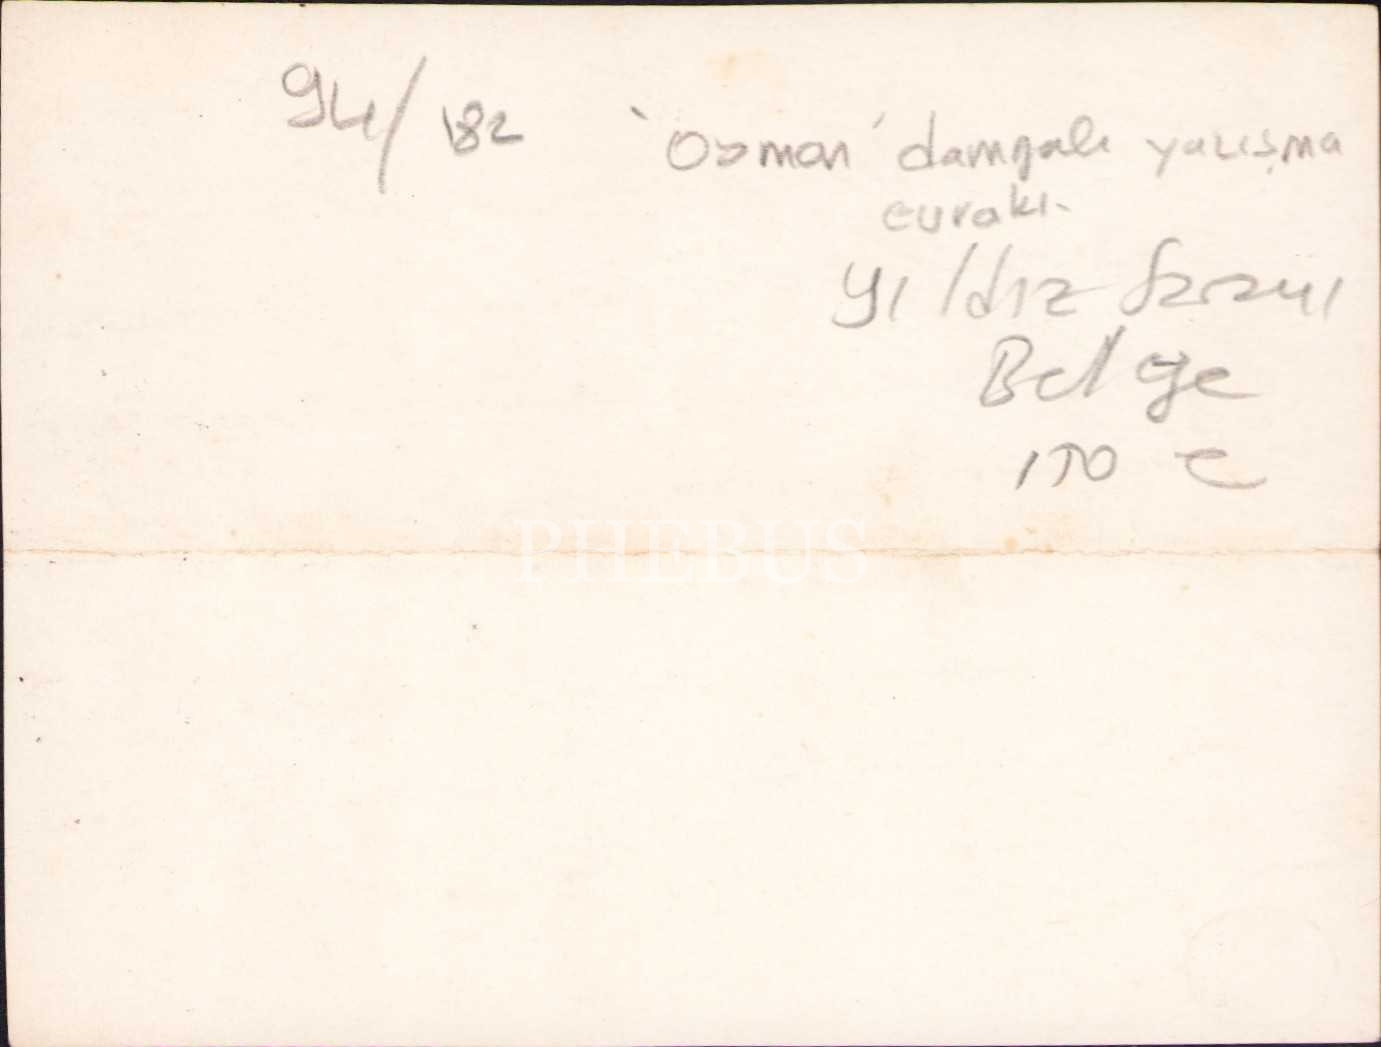 94/182 'Osman' damgalı yazışma
evrakı.
Yıldız Sarayı
Belge
150 €
PHEBUS